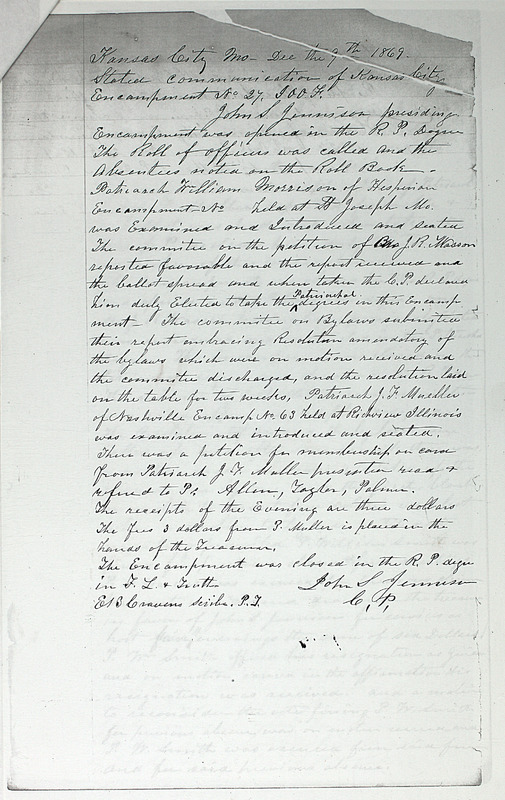 Kansas City Mo– Dec the 9th 1869.
Stated communication of Kansas City
Encampment No 27, I.O.O.F.
John S Jennison presiding
Encampment was opened in the R. P. Degree
The Roll of officers was called and the
Absentees noted on the Roll Book –
Patriarch William Morrison of Hesperian
Encampment No held at St Joseph Mo.
was Examined and Introduced and seated
The committee on the petition of J. R. Masson
reported favorable and the report received and
the ballot spread and when taken the C. P. declared
him duly Elected to take the Patriarchal degrees in this Encamp
ment – The committee on Bylaws submitted
their report embracing Resolution amendatory of
the bylaws which were on motion received and
the committee discharged, and the resolution laid
on the table for two weeks, Patriarch J. F. Mueller
of Nashville Encamp No. 63 held at Richview Illinois
was examined and introduced and seated.
There was a petition for membership on card
from Patriarch J. F. Muller read &
refered to Ps Allen, Taylor, Palmer.
The receipts of the Evening are three dollars
The fees 3 dollars from P. Muller is placed in the
hands of the Treasurer.
The Encampment was closed in the R. P. degree
in F. L. & Truth John S Jennison
Ed B Cravens Scribe. P. T. C. P.